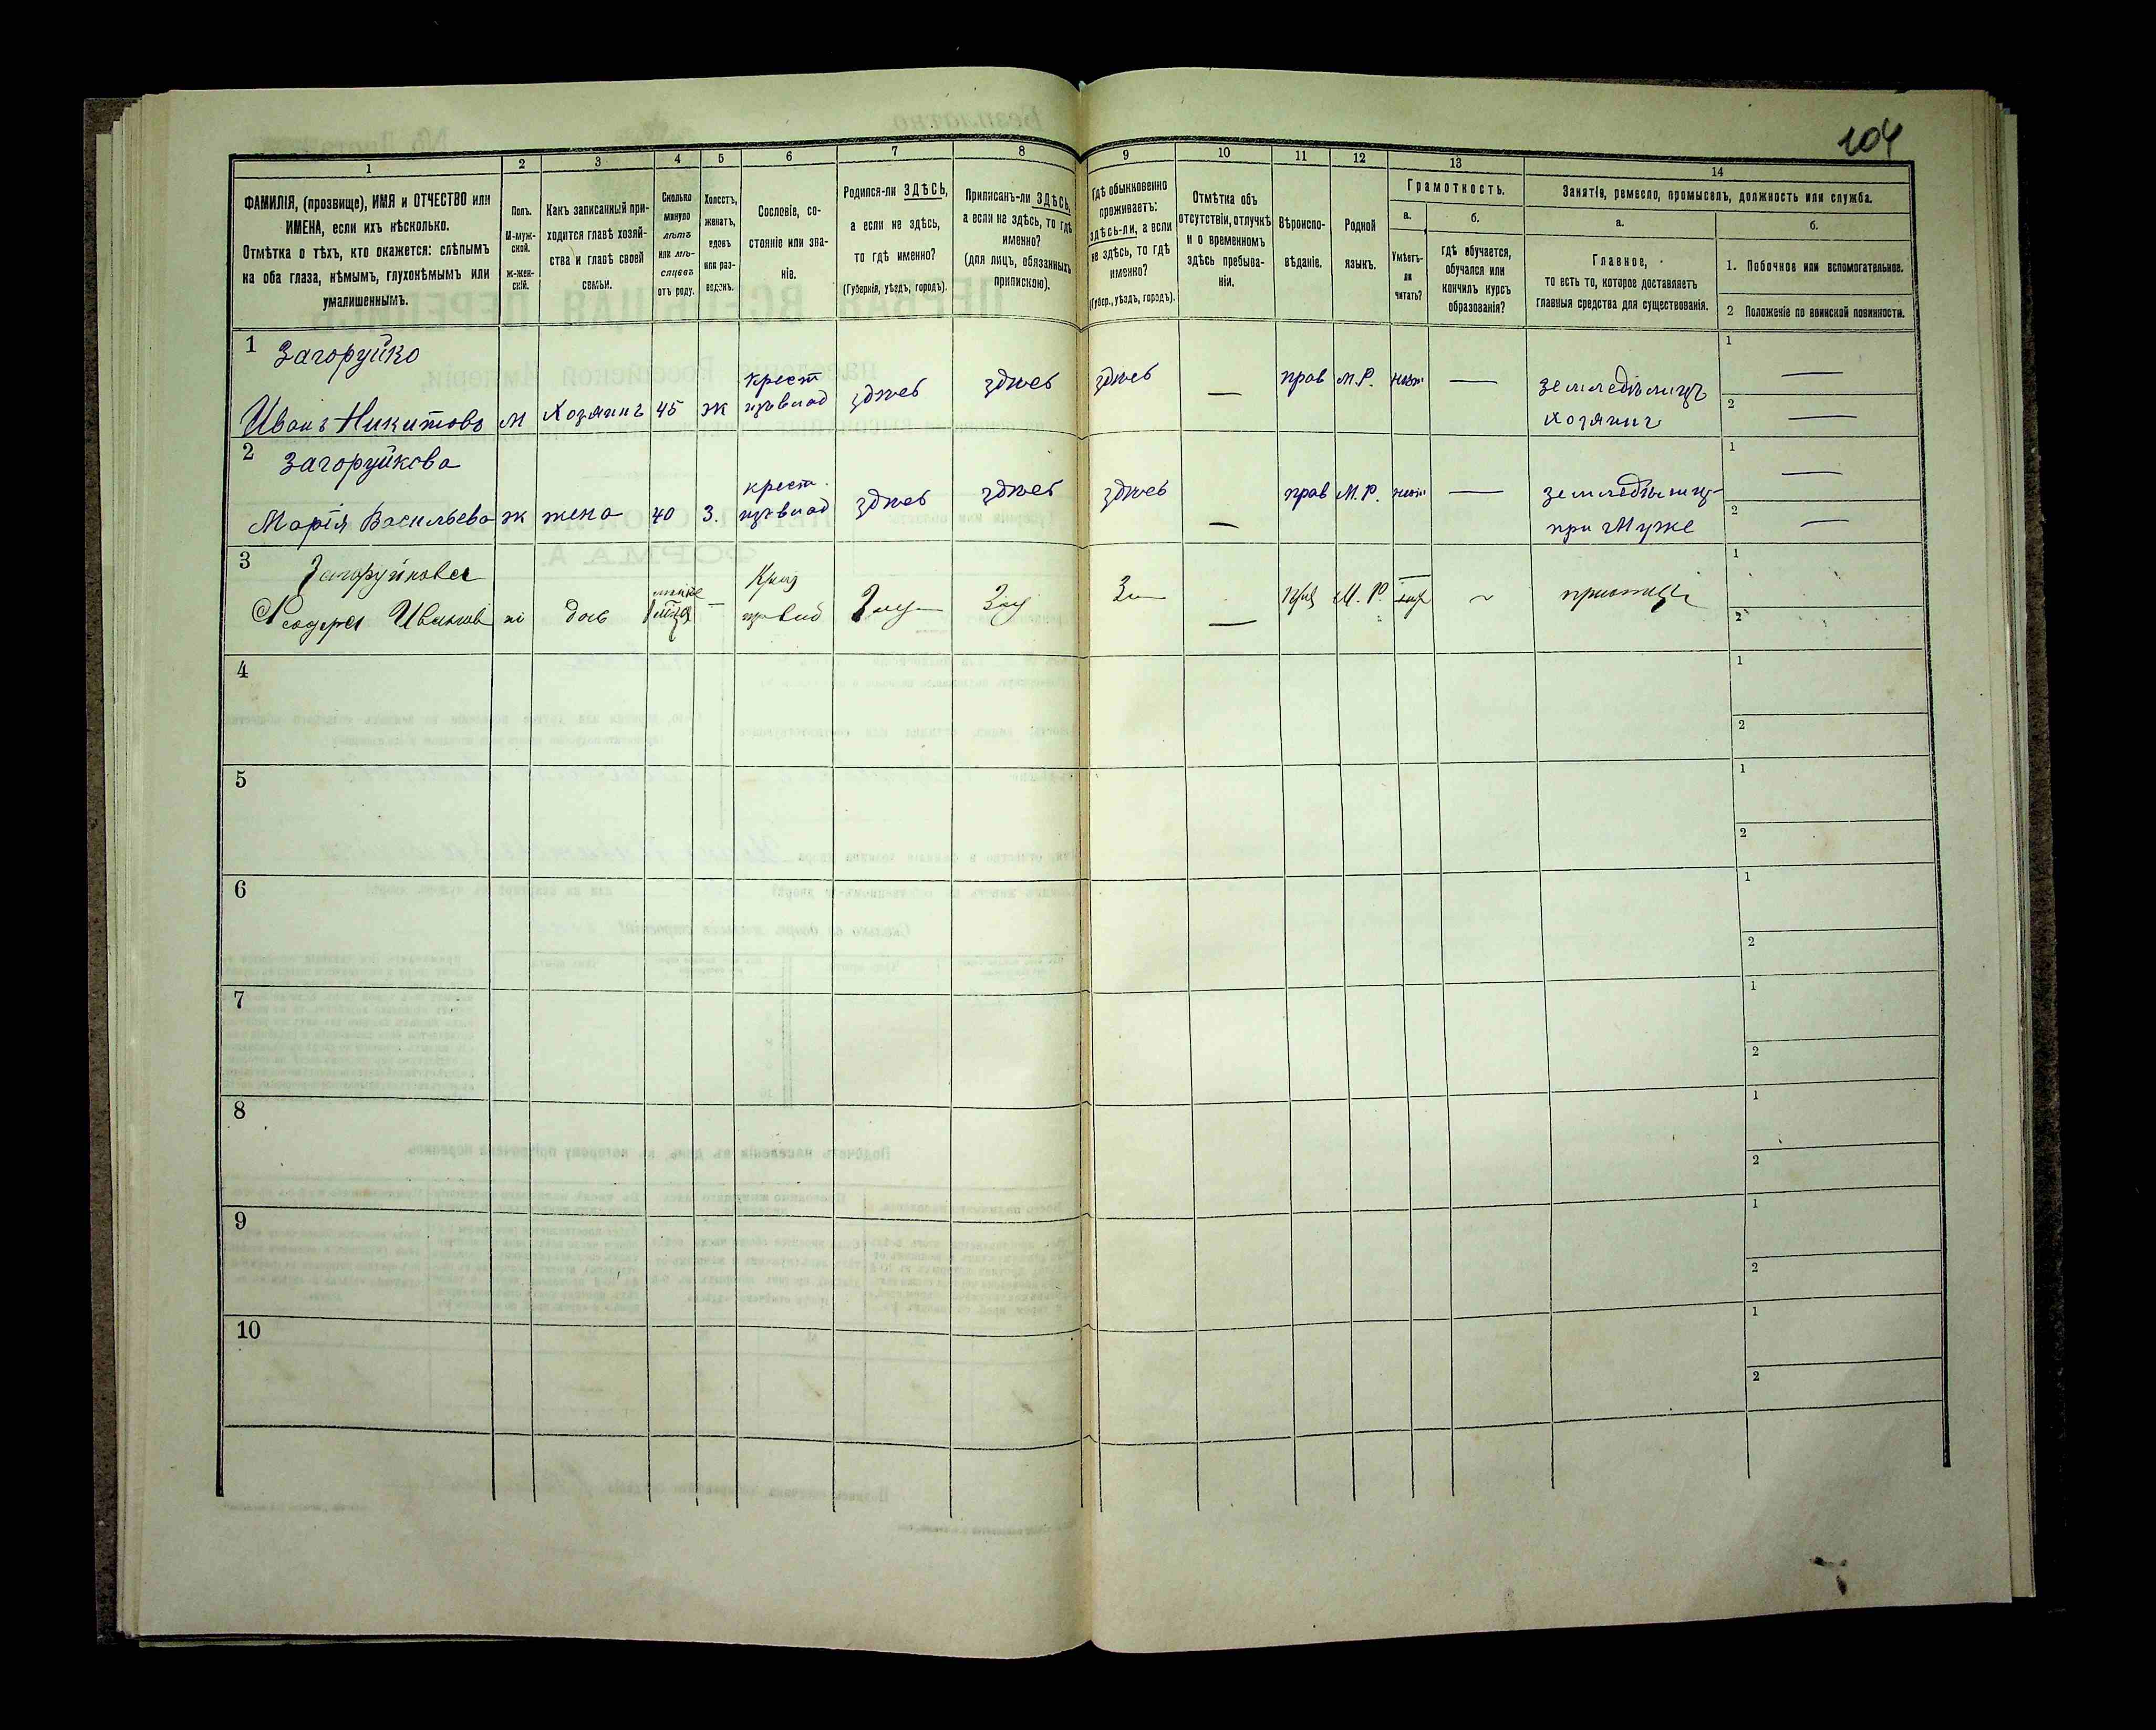 104
1
2
3
4
5
6
7
8
9
10
11
12
13
14
ФАМИЛІЯ, (прозвище), ИМЯ и ОТЧЕСТВО или
ИМЕНА, если ихъ нѣсколько.
Отмѣтка о тѣхъ, кто окажется: слѣпымъ
на оба глаза, нѣмымъ, глухонѣмымъ или
умалишеннымъ.
Полъ.
М-муж-
ской.
ж-жен-
скій.
Какъ записанный при-
ходится главѣ хозяй-
ства и главѣ своей
семьи.
Сколько
минуло
лѣтъ
или мѣ-
сяцевъ
отъ роду.
Холостъ,
женатъ,
вдовъ
или раз-
веденъ.
Сословіе, со-
стояніе или зва-
ніе.
Родился-ли ЗДѢСЬ,
а если не здѣсь,
то гдѣ именно?
(Губернія, уѣздъ, городъ).
Приписанъ-ли ЗДѢСЬ,
а если не здѣсь, то гдѣ
именно?
(для лицъ, обязанныхъ
припискою).
Гдѣ обыкновенно
проживаетъ:
здѣсь-ли, а если
не здѣсь, то гдѣ
именно?
(Губер., уѣздъ, городъ).
Отмѣтка объ
отсутствіи, отлучкѣ
и о временномъ
здѣсь пребыва-
ніи.
Вѣроиспо-
вѣданіе.
Родной
языкъ.
Грамотность.
а.
Умѣетъ-
ли
читать?
б.
гдѣ обучается,
обучался или
кончилъ курсъ
образованія?
Занятія, ремесло, промыселъ, должность или служба.
а.
Главное,
то есть то, которое доставляетъ
главныя средства для существованія.
б.
1. Побочное или вспомогательное.
2 Положеніе по воинской повинности.
1 Загоруйко
Иванъ Никитовъ м Хозяинъ 45 ж крест здѣсь здѣсь здѣсь — прав М.Р. нѣт — земледѣлецъ
хозяинъ
1 —
2 —
2 Загоруйкова
Марія Васильева ж жена 40 З. крест. здѣсь здѣсь здѣсь — прав М.Р. нѣт —
при Муже
1 —
2 —
3 Загоруйкова
дочь М.Р.
1
2
4
1
2
5
1
2
6
1
2
7
1
2
8
1
2
9
1
2
10
1
2